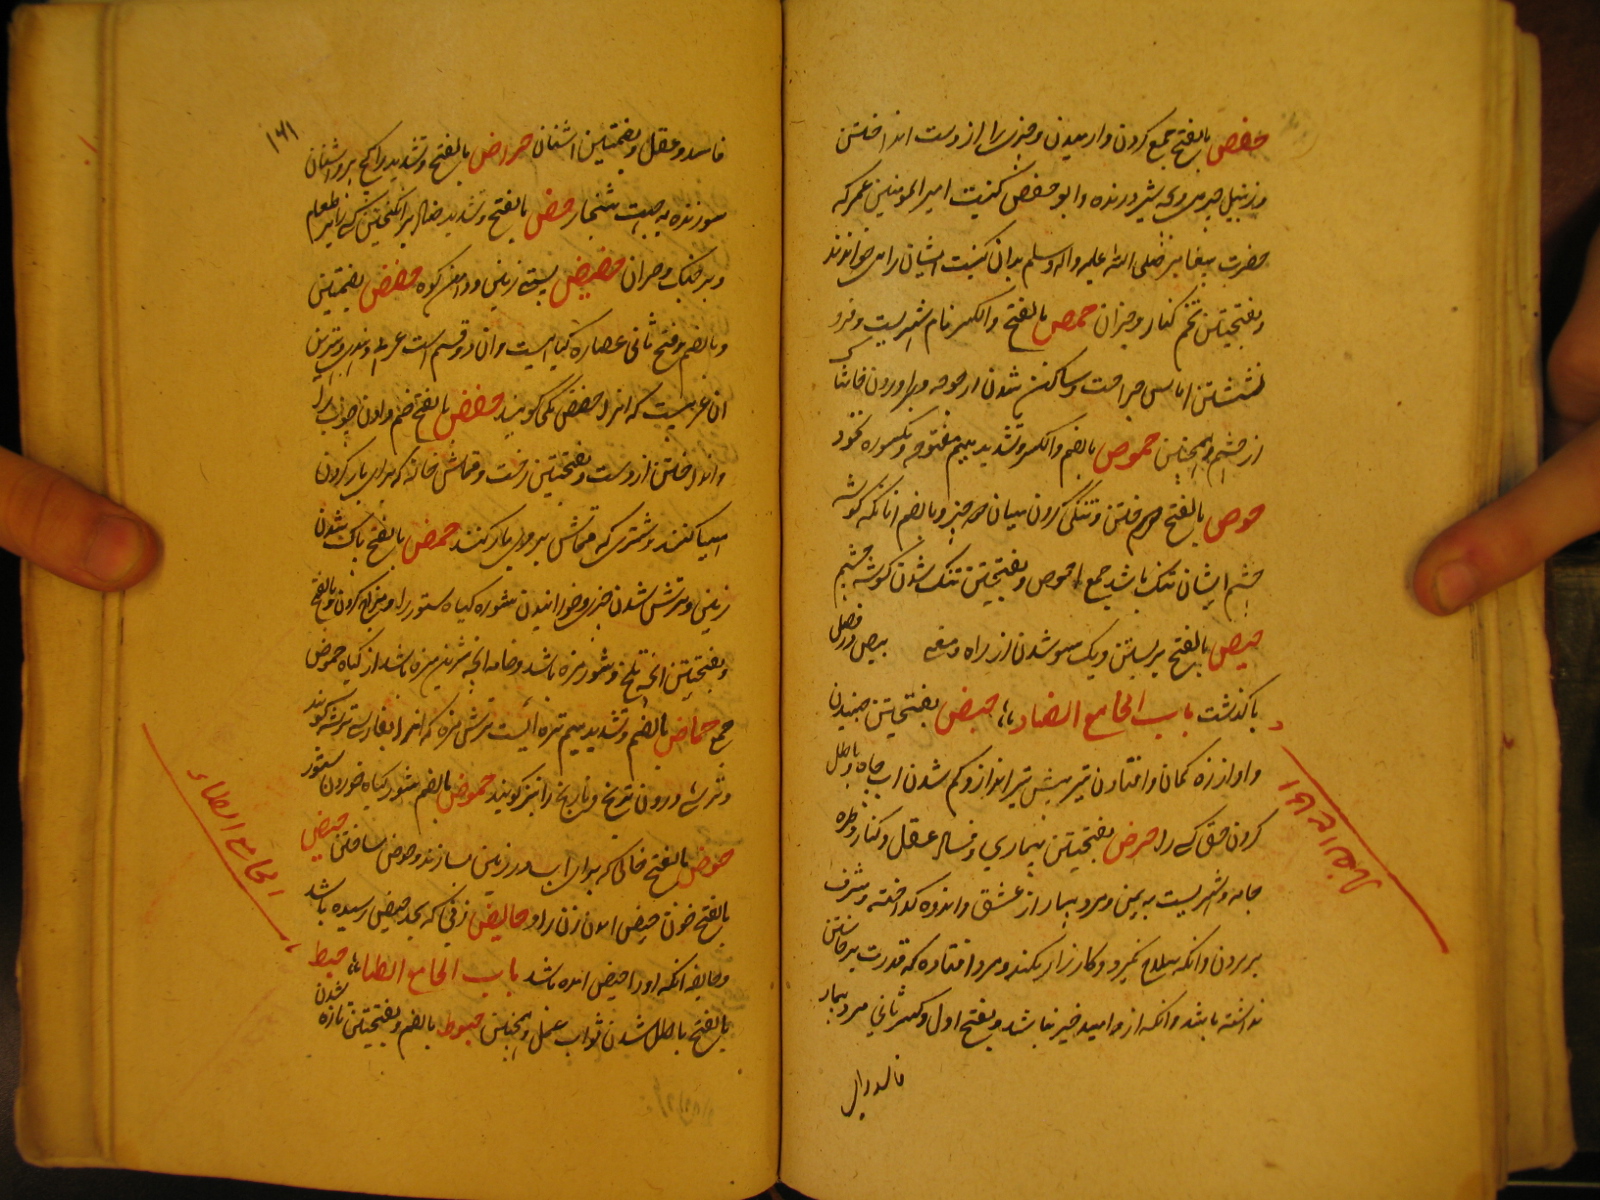 حفص بالفتح جمع کردن وارمیدن وچیزی را از دست انداختن
وزنبیل چرمی وبچه شیر درنده وابو حفص کنیت امیر المومنین عمر که
حضرت پیغامبر صلی الله علیه واله وسلم بدان کنیت ایشان را می خواندند
وبفتحتین تخم کنار وجزان حمص بالفتح والکسر نام شهریست وفرو
نشستن اماس جراحت وساکن شدن ارجوحه وبراوردن خاشاک
از چشم وهمچنین حموص بالضم والکسر وتشدید میم مفتوحه ومکسوره نخود
حوص بالفتح دوختن وتنگی کردن میان دو چیز وبالضم انانکه گوشه
چشم ایشان تنک باشد جمع احوص وبفتحتین تنک شدن گوشه چشم
حیص بالفتح برگشتن ویک سو شدن از راه ومعنه بیص در فصل
با گذشت باب الحا مع الضاد حبض بفتحتین جنبیدن
واواز زه کمان وافتادن تیر پیش تیر انداز وکم شدن اب چاه وباطل
کردن حق کسی را حرض بفتحتین بیماری وفساد عقل وکناره وطره
جامه وشهریست به یمن ومرد بیمار از عشق واندوه گداخته ومشرف
بر مردن وانکه سلاح نگیرد وکارزار نکند ومرد افتاده که قدرت برخاستن
نداشته باشد وانکه ازو امید خیر نباشد وبفتح اول وکسر ثانی مرد بیمار
فاسد
الحا مع الضاد
۱۶۱
فاسد وعقل وبضمتین اشنان حراض بالفتح وتشدید را گچ پز واشنان
سوزنده به جهت شخار حض بالفتح وتشدید ضاد بر انگیختن کسی را بر طعام
وبر جنگ وجزان حضیض پستی زمین ودامن کوه حضض بضمتین
وبالضم وفتح ثانی عصاره گیاهیست وان دو قسم است عربی وهندی وبهترین
ان عربیست که انرا حضض مکی گویند حفض بالفتح خم دادن چوب را
وانداختن از دست وبفتحتین رخت وقماش خانه که برای بار کردن
مهیا کنند وشتری که قماش بروی بار کنند حمض بالفتح
زمین وترش شدن چیزی وخورانیدن شوره گیاه ستور را وبالفتح
وبفتحتین انچه تلخ وشور مزه باشد وخلة انچه شیرین مزه باشد از گیاه حموض
جمع حماض بالضم وتشدید میم تره ایست ترش مزه که انرا بفارسی ترشه گویند
وترشی درون ترنج ونارنج را نیز گویند حموض بالضم شور گیاه خوردن ستور
حوض بالفتح جائی که برای اب در زمین سازند وحوض ساختن حیض
بالفتح خون حیض امدن زن را وحایض زنی که بحد حیض رسیده باشد
وحایضه انکه او را حیض امده باشد باب الحا مع الطا حبط
بالفتح باطل شدن ثواب عمل وهمچنین حبوط بالضم وبفتحتین تازه شدن
الحا مع الطاء